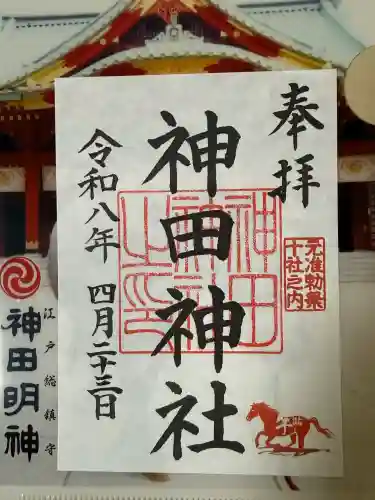 奉拝
元准勅祭
十社之内
神田神社
神田神社之印
令和八年 四月二十三日
江戸総鎮守
神田明神